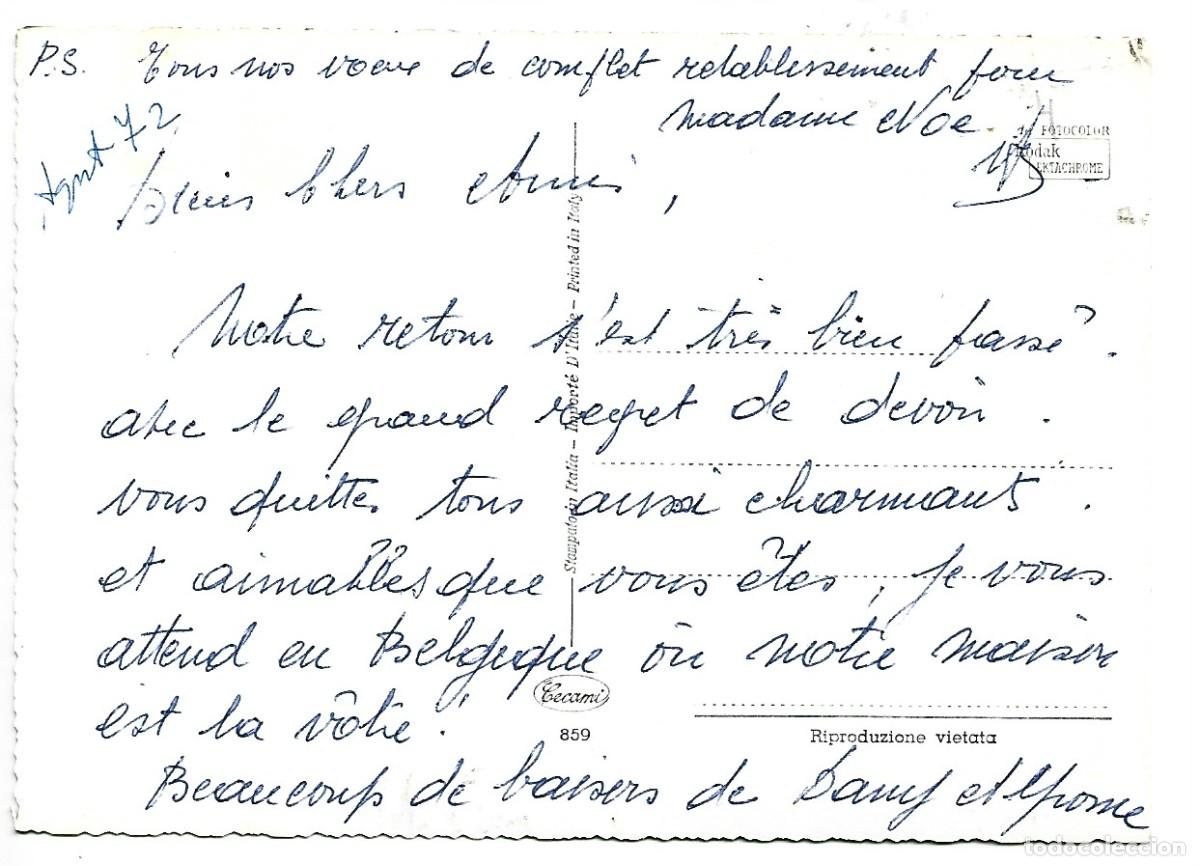 P.S. Tous nos voeux de complet retablissement pour
Madame Noe
Agust 72
FOTOCOLOR
Kodak
EKTACHROME
Chers Amis,
Stampato in Italia - Importé D'Italie - Printed in Italy
Notre retour s'est très bien passé.
avec le grand regret de devoir.
vous quitter tous aussi charmants.
et aimables que vous êtes, je vous
attend en Belgique où notre maison
est la vôtre!
Cecami
859
Riproduzione vietata
Beaucoup de baisers de Dany et
todocoleccion